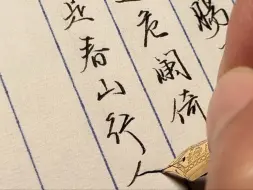 危阑倚
是春山行人